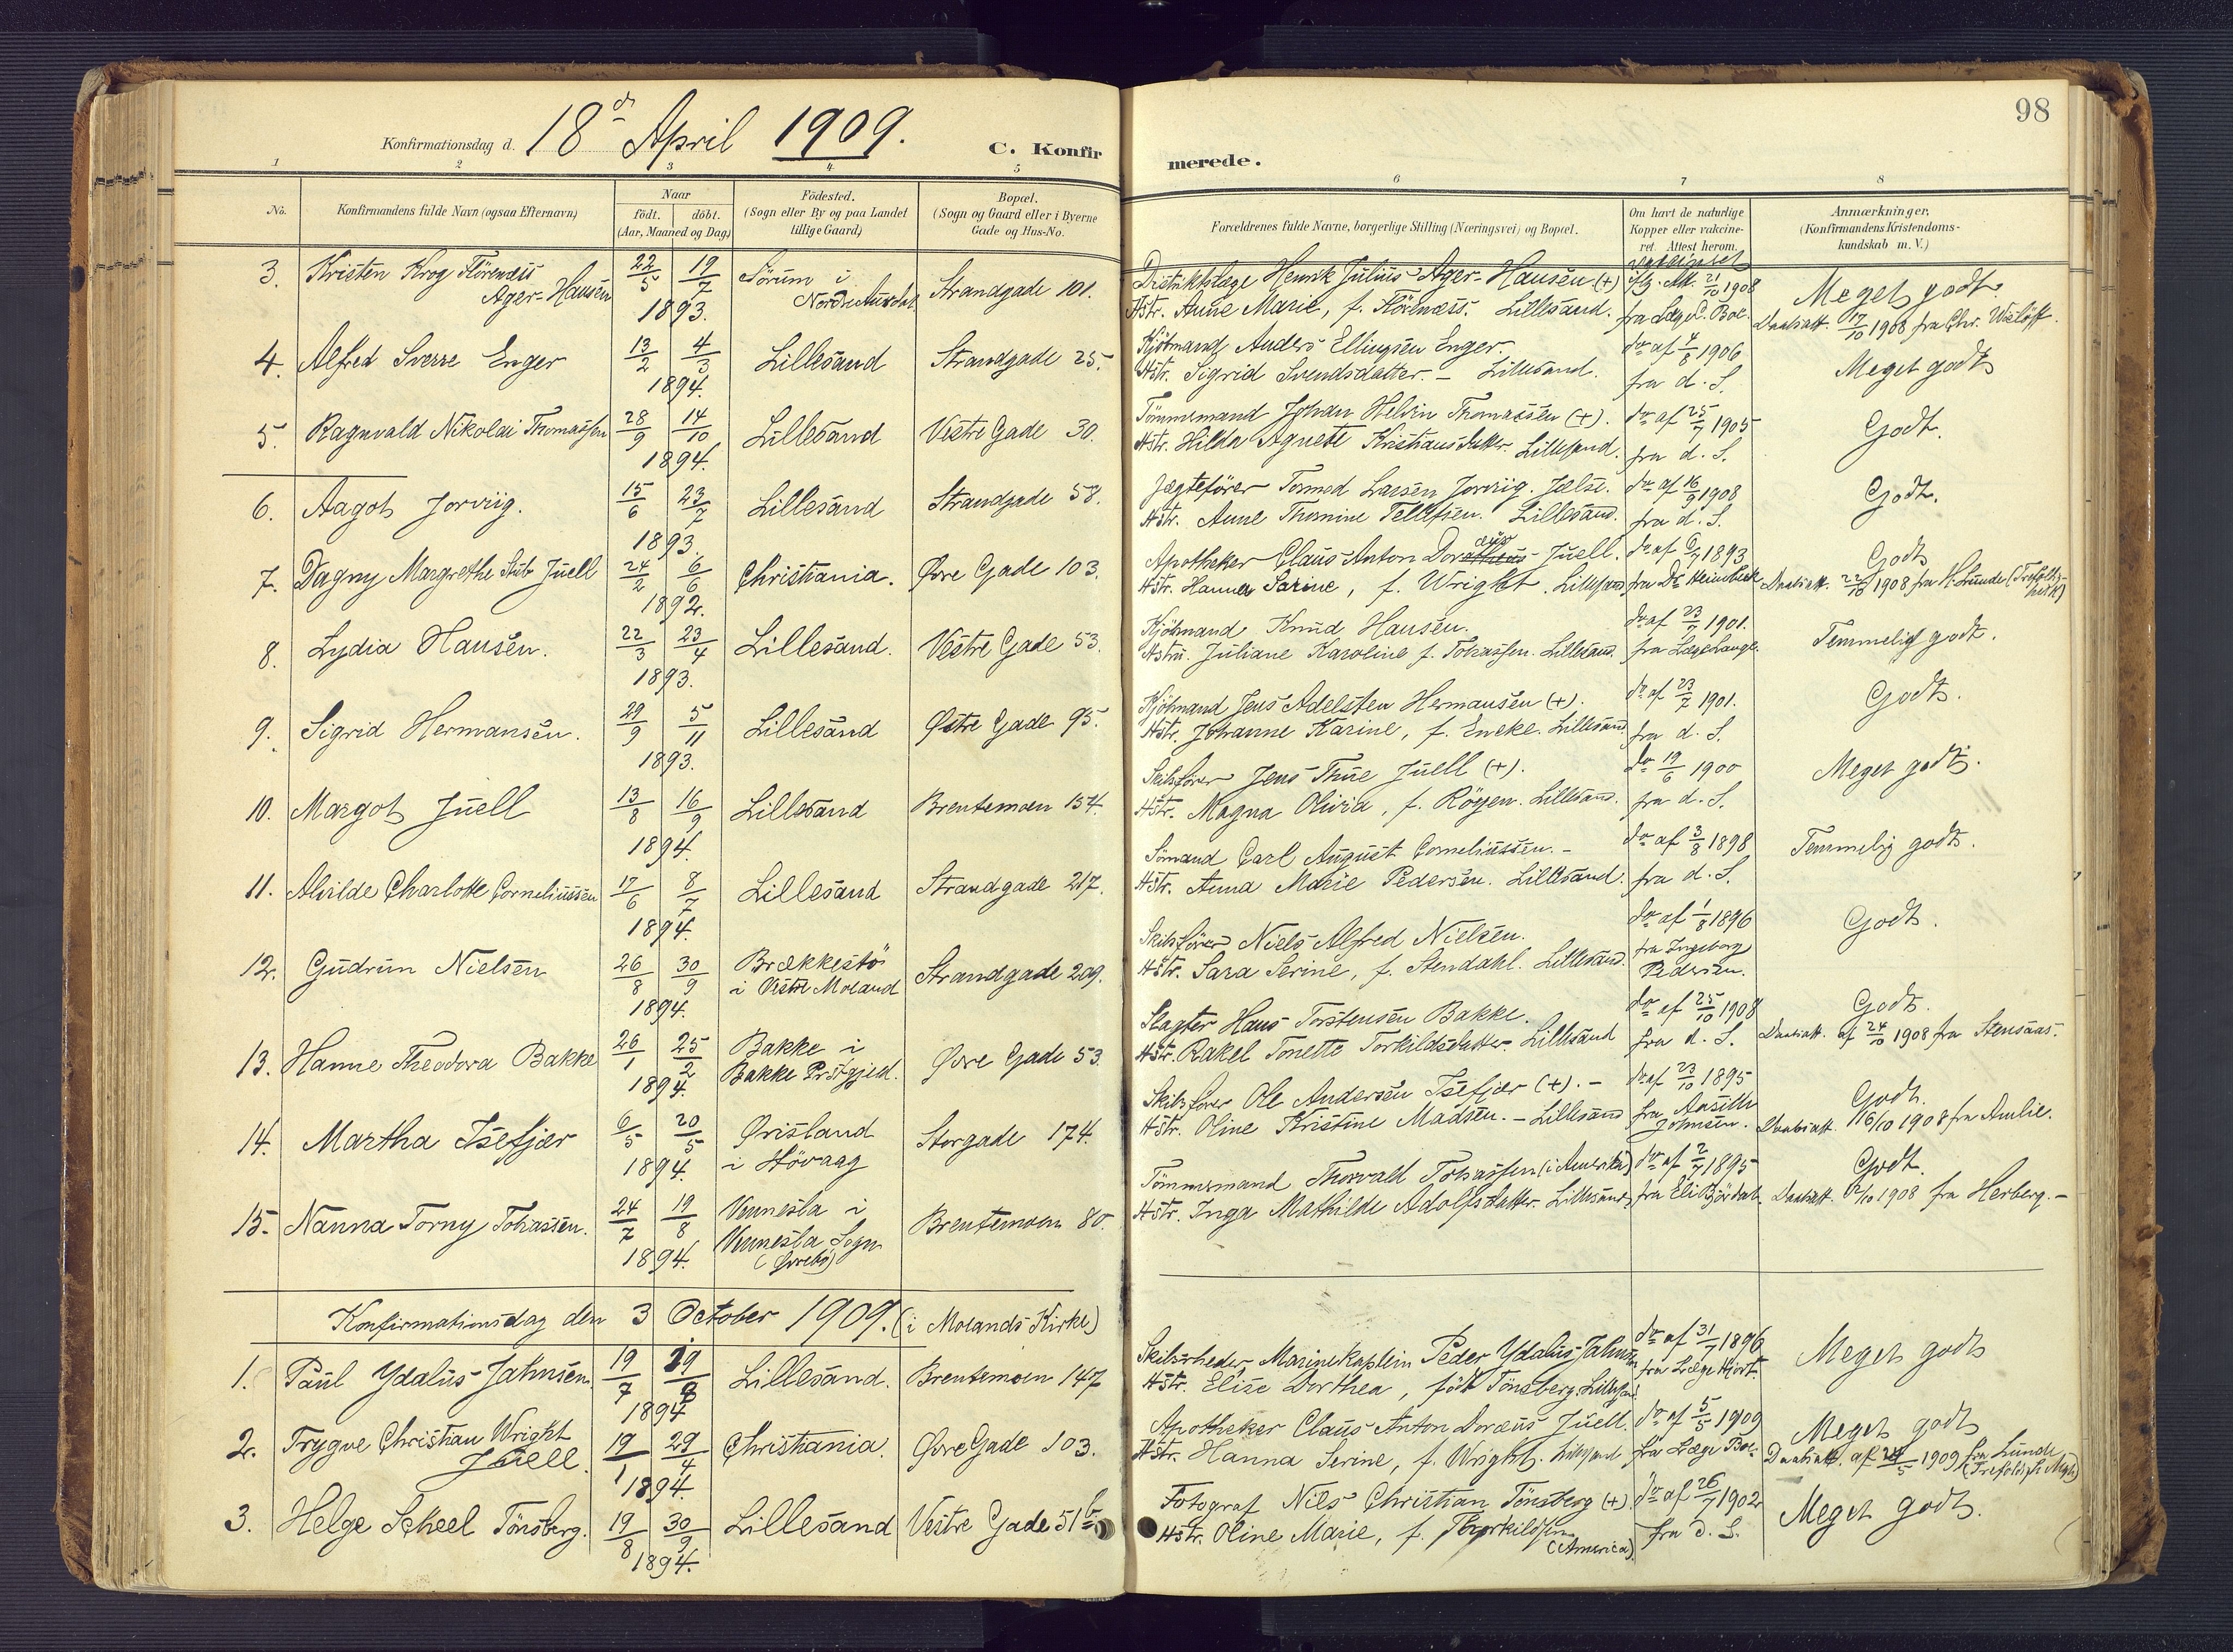 98
Konfirmationsdag d. 18d April 1909.
C. Konfirmerede.
1 2 3 4 5 6 7 8
No.
Konfirmandens fulde Navn (ogsaa Efternavn)
Naar
födt. döbt.
(Aar, Maaned og Dag)
Födested.
(Sogn eller By og paa Landet
tillige Gaard)
Bopæl.
(Sogn og Gaard eller i Byerne
Gade og Hus-No.
Forældrenes fulde Navne, borgerlige Stilling (Næringsvei) og Bopæl.
Om havt de naturlige
Kopper eller vakcine-
ret. Attest herom.
Anmærkninger.
(Konfirmandens Kristendoms-
kundskab m. V.)
3. Kristen Krog Flörenæss
Ager-Hansen
22/5 19/7
1893.
Sörum i
Nordre Aurdal
Strandgade 101.
Distriktslæge Henrik Julius Ager-Hansen (+)
Hstr. Anne Marie, f. Flörenæss. Lillesand.
vaccineret
iflg. Att. 21/10 1908
fra Læge C. Boe.
Meget godt
Daabsatt. 17/10 1908 fra Chr. Wislöff.
4. Alfred Sverre Enger
13/2 4/3
1894.
Lillesand
Strandgade 25.
Kjöbmand Anders Ellingsen Enger.
Hstr. Sigrid Svendsdatter. - Lillesand.
do af 4/8 1906
fra d. S.
Meget godt
5. Ragnvald Nikolai Thomassen
28/9 14/10
1894.
Lillesand
Vestre Gade 30.
Tömmermand Johan Helvin Thomassen (+).
Hstr. Hilda Agnete Kristiansdatter. Lillesand.
do af 25/7 1905
fra d. S.
Godt.
6. Aagot Jorviig.
15/6 23/7
1893.
Lillesand
Strandgade 58.
Jægtefører Tormod Larsen Jorviig. Jelse.
Hstr. Anne Thomine Tellefsen. Lillesand.
do af 16/9 1908
fra d. S.
Godt.
7. Dagny Margrethe Stub Juell
24/2 6/6
1892.
Christiania.
Øvre Gade 103.
Apotheker Claus Anton Doræus Juell.
Hstr. Hanna Sarine, f. Wright. Lillesand
do af 6/7 1893
fra Dr Heimbeck
Godt
Daabsatt. 22/10 1908 fra H. Lunde (Trefoldighetsk)
8. Lydia Hansen.
22/3 23/4
1893.
Lillesand.
Vestre Gade 53.
Kjöbmand Knud Hansen.
Hstru. Juliane Karoline f. Tobiassen. Lillesand.
do af 23/7 1901.
fra Læge Lange.
Temmelig godt.
9. Sigrid Hermansen.
29/9 5/11
1893.
Lillesand
Østre Gade 95.
Kjöbmand Jens Adelsten Hermansen (+).
Hstr. Johanne Karine, f. Eneke. Lillesand
do af 23/7 1901.
fra d. S.
Godt.
10. Margot Juell
13/8 16/9
1894.
Lillesand
Brentemoen 154.
Skibsfører Jens Thue Juell (+).
Hstr. Magna Olivia, f. Röyen. Lillesand.
do 19/6 1900
fra d. S.
Meget godt.
11. Alvilde Charlotte Corneliussen
17/6 8/7
1894.
Lillesand
Strandgade 217.
Sömand Carl August Corneliussen. -
Hstr. Anna Marie Pedersen. Lillesand.
do af 3/8 1898
fra d. S.
Temmelig godt.
12. Gudrun Nielsen
26/8 30/9
1894.
Brækkestö
i Vestre Moland
Strandgade 209.
Skibsfører Niels Alfred Nielsen.
Hstr. Sara Serine, f. Stendahl. Lillesand.
do af 1/8 1896
fra Ingeborg
Pedersen.
Godt.
13. Hanne Theodora Bakke
26/1 25/2
1894.
Bakke i
Bakke Prstgjeld.
Øvre Gade 53.
Slagter Hans Torstensen Bakke.
Hstr. Rakel Tonette Torkildsdatter. Lillesand
do af 25/10 1908
fra d. S.
Godt.
Daabsatt. af 24/10 1908 fra Stensaas.
14. Martha Isefjær
6/5 20/5
1894.
Ørisland
i Hövaag
Storgade 174.
Skibsfører Ole Andersen Isefjær (+). -
Hstr. Oline Kristine Madsen. - Lillesand
do af 23/10 1895
fra Aasille
Johnsen.
Godt.
Daabsatt. 16/10 1908 fra Amlie.
15. Nanna Torny Tobiassen.
24/7 19/8
1894.
Vennesla i
Vennesla Sogn
(Øvrebö)
Brentemoen 80.
Tömmermand Thorvald Tobiassen (i Amerika)
Hstr. Inga Mathilde Adolfsdatter. Lillesand
do af 2/7 1895
fra Eli Björdal
Godt.
Daabsatt. 12/10 1908 fra Herberg. -
Konfirmationsdag den 3 October 1909. (i Molands Kirke)
1. Paul Ydalus Jahnsen.
19/7 29/8
1894
Lillesand.
Brentemoen 147
Skibsrheder, Marinekaptein Peder Ydalus Jahnsen
Hstr. Elise Dorthea, född Tönsberg. Lillesand
do af 31/7 1896
fra Læge Hjort.
Meget godt
2. Trygve Christian Wright
Juell.
19/1 29/4
1894.
Christiania.
Øvre Gade 103.
Apotheker Claus Anton Doræus Juell.
Hstr. Hanna Serine, f. Wright. Lillesand
do af 5/5 1909
fra Læge Boe.
Meget godt
Daabsatt. af 24/5 1909 fra Lunde
3. Helge Scheel Tönsberg.
19/8 30/9
1894.
Lillesand
Vestre Gade 51b
Fotograf Nils Christian Tönsberg (+)
Hstr. Oline Marie, f. Thorkildsen
(America)
do af 26/7 1902
fra d. S.
Meget godt.